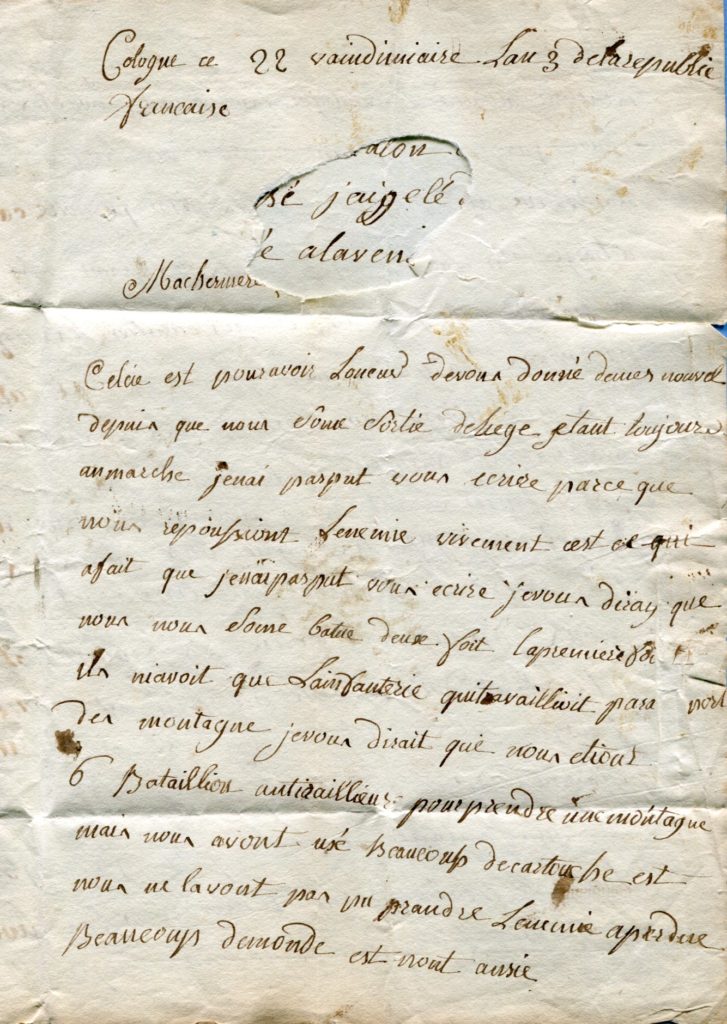 Cologne ce 22 vaindimiaire Lan 3 delarepublic
francaise
alon
sé jaigelé
é alaveni
Machermere
Celcie est pouravoir Loneur devous donné demes nouvel
depuis que nous Some Sortie deliege etant toujours
anmarche jenai parput vous ecrire parce que
nous repoussiont Lenemie vivement cest ce qui
afait que jenai parput vous ecrire jevous diray que
nous nous Some batue deux foit lapremiere foi
ils niavoit que Lainfanterie quitravaillioit para port
des montagne jevous dirait que nous etions
6 Bataillion antiraillieur pourprendre une montagne
mais nous avont usé Beaucoup decartouche est
nous ne lavont pas pu prandre Lenemie aperdue
Beaucoup demonde est nont ausie